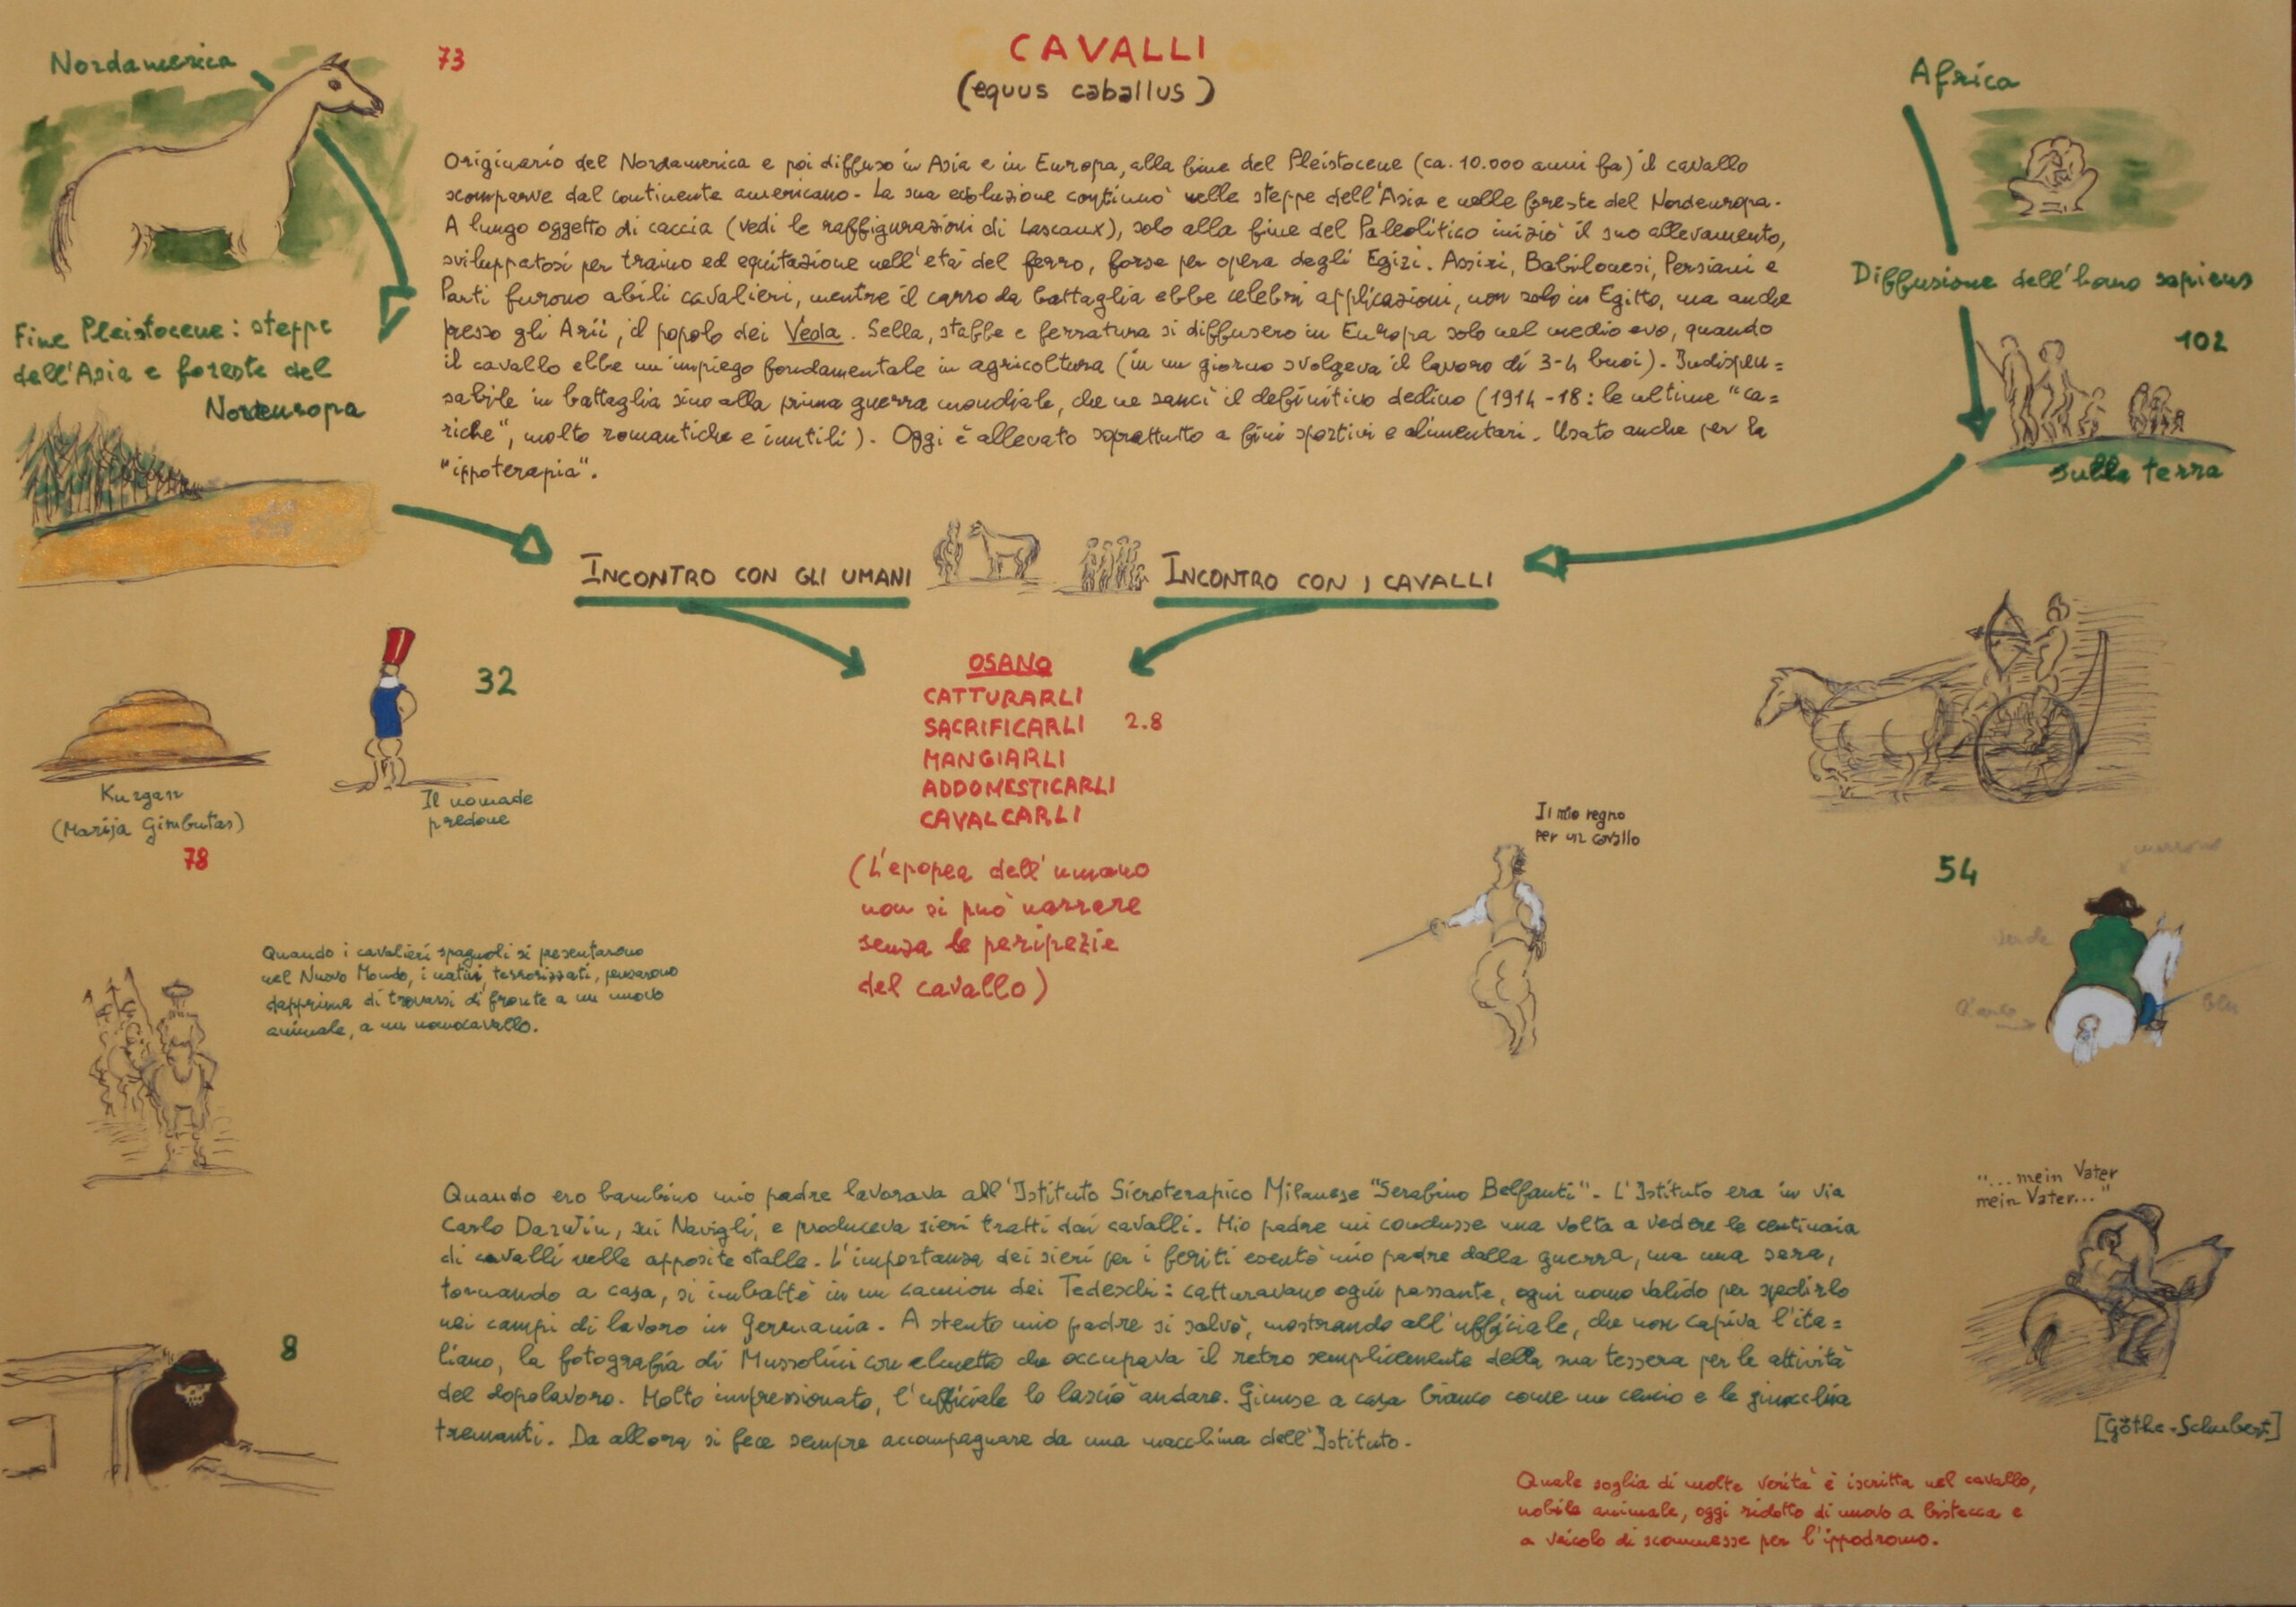 Nordamerica
73
CAVALLI
(equus caballus)
Africa
Originario del Nordamerica e poi diffuso in Asia e in Europa, alla fine del Pleistocene (ca. 10.000 anni fa) il cavallo
scomparve dal continente americano. La sua evoluzione continuò nelle steppe dell'Asia e nelle foreste del Nordeuropa.
A lungo oggetto di caccia (vedi le raffigurazioni di Lascaux), solo alla fine del Paleolitico iniziò il suo allevamento,
sviluppatosi per traino ed equitazione nell'età del ferro, forse per opera degli Egizi. Assiri, Babilonesi, Persiani e
Parti furono abili cavalieri, mentre il carro da battaglia ebbe celebri applicazioni, non solo in Egitto, ma anche
presso gli Arii, il popolo dei Veda. Sella, staffe e ferratura si diffusero in Europa solo nel medio evo, quando
il cavallo ebbe un impiego fondamentale in agricoltura (in un giorno svolgeva il lavoro di 3-4 buoi). Indispen=
sabile in battaglia sino alla prima guerra mondiale, che ne sancì il definitivo declino (1914-18: le ultime "ca=
riche", molto romantiche e inutili). Oggi è allevato soprattutto a fini sportivi e alimentari. Usato anche per la
"ippoterapia".
Diffusione dell'homo sapiens
102
sulla terra
Fine Pleistocene: steppe
dell'Asia e foreste del
Nordeuropa
INCONTRO CON GLI UMANI
INCONTRO CON I CAVALLI
OSANO
CATTURARLI
SACRIFICARLI 2.8
MANGIARLI
ADDOMESTICARLI
CAVALCARLI
(L'epopea dell'umano
non si può narrare
senza le peripezie
del cavallo)
32
Kurgan
(Marija Gimbutas)
78
Il nomade
predone
Il mio regno
per un cavallo
54
marrone
verde
bianco
blu
Quando i cavalieri spagnoli si presentarono
nel Nuovo Mondo, i nativi, terrorizzati, pensarono
dapprima di trovarsi di fronte a un nuovo
animale, a un uomocavallo.
Quando ero bambino mio padre lavorava all'Istituto Sieroterapico Milanese "Serafino Belfanti". L'Istituto era in via
Carlo Darwin, sui Navigli, e produceva sieri tratti dai cavalli. Mio padre mi condusse una volta a vedere le centinaia
di cavalli nelle apposite stalle. L'importanza dei sieri per i feriti esentò mio padre dalla guerra, ma una sera,
tornando a casa, si imbatté in un camion dei Tedeschi: catturavano ogni passante, ogni uomo valido per spedirlo
nei campi di lavoro in Germania. A stento mio padre si salvò, mostrando all'ufficiale, che non capiva l'ita=
liano, la fotografia di Mussolini con elmetto che occupava il retro semplicemente della sua tessera per le attività
del dopolavoro. Molto impressionato, l'ufficiale lo lasciò andare. Giunse a casa bianco come un cencio e le ginocchia
tremanti. Da allora si fece sempre accompagnare da una macchina dell'Istituto.
8
"...mein Vater
mein Vater..."
[Göthe-Schubert]
Quale soglia di molte verità è iscritta nel cavallo,
nobile animale, oggi ridotto di nuovo a bistecca e
a veicolo di scommesse per l'ippodromo.